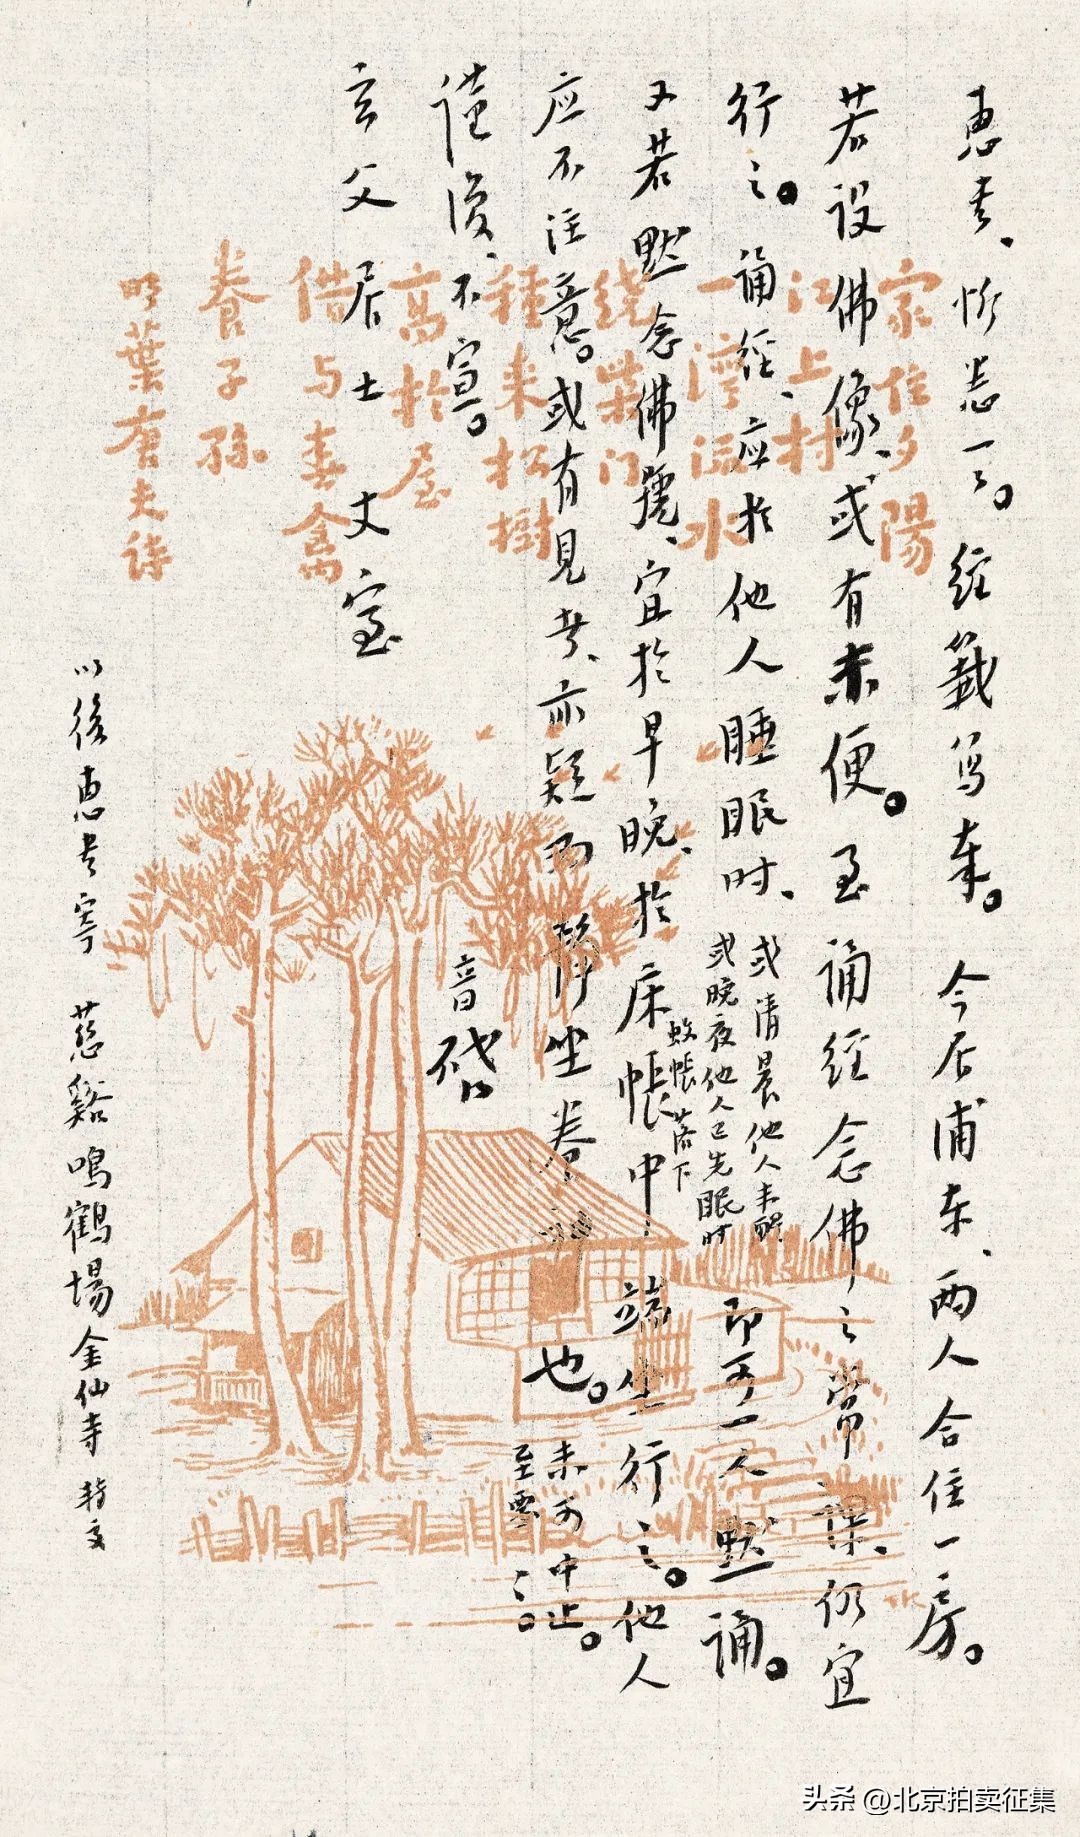 惠书、忻悉一一。经籤写奉。今居浦东、两人合住一房。
若设佛像、或有未便。至诵经念佛之常课、仍宜
行之。诵经、应於他人睡眠时、
或清晨他人未醒
或晚夜他人已先眠时
蚊帐落下
即可一人默诵。
又若默念佛號、宜於早晚、於床帳中端坐行之。他人
应不注意。或有見者、亦疑为静坐養神也。
未可中止。
至要々々。
谨復、不宣。
音啓
玄父居士丈室
以後惠书寄 慈谿鳴鶴場金仙寺 转交
家住夕陽
江上村
一灣流水
繞柴门
種来松樹
高於屋
借与春禽
養子孫
明葉唐夫詩
头条 @北京拍卖征集